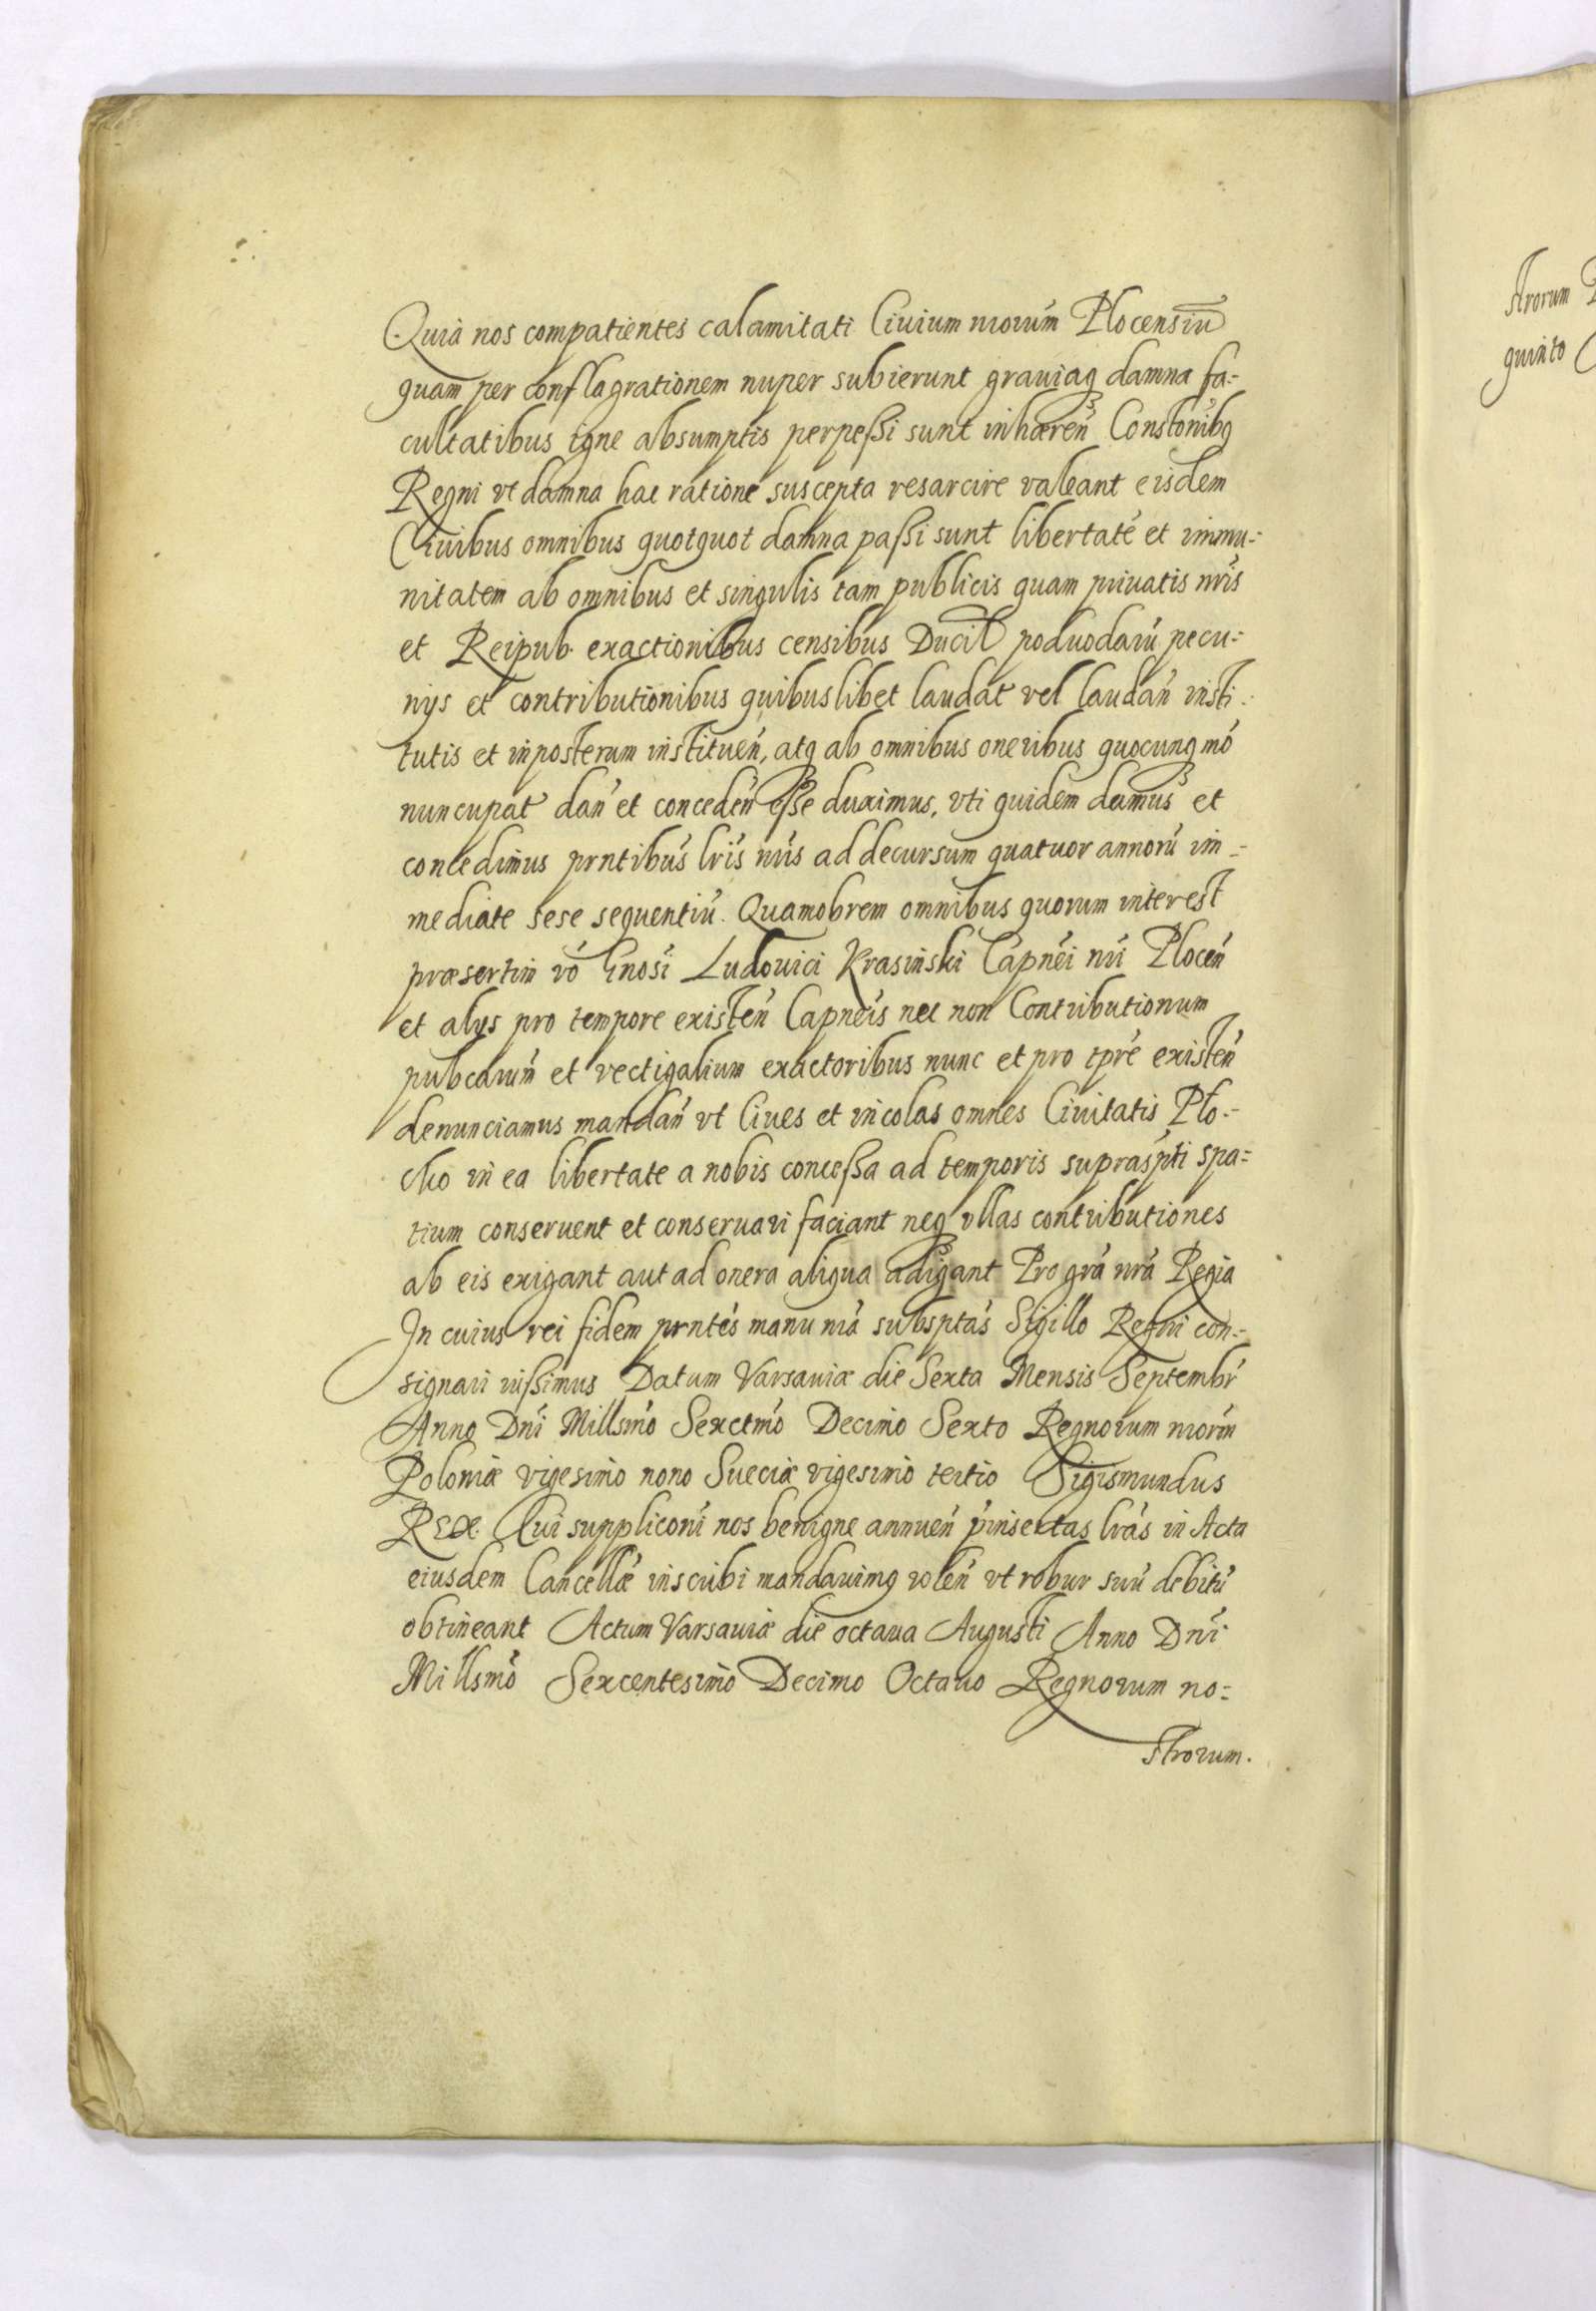 Quia nos compatientes calamitati Ciuium nrorum Plocensiū
quam per conflagrationem nuper subierunt grauiaq damna fa=
cultatibus igne absumptis perpeßi sunt inhæren̄ Constōnibq
Regni vt damna hac ratione suscepta resarcire valeant eisdem
Ciuibus omnibus quotquot damna paßi sunt libertatē et immu=
nitatem ab omnibus et singulis tam publicis quam priuatis nris
et Reipub. exactionibus censibus Ducil poduodarū pecu=
nijs et contributionibus quibuslibet laudat vel laudań insti=
tutis et inposterum institueń, atq ab omnibus oneribus quocunq mō
nuncupat dań et concedeń eße duximus, vti quidem damus et
concedimus prntibus lris nris ad decursum quatuor annorū im=
mediate sese sequentiū. Quamobrem omnibus quorum interest
præsertim vō Gnosi Ludouici Krasinski Capnei nri Plocen̄
et alys pro tempore existeń Capneis nec non Contributionum
pubcarum et vectigalium exactoribus nunc et pro tpre existeń
denunciamus mandań vt Ciues et incolas omnes Ciuitatis Plo=
cko in ea libertate a nobis conceßa ad temporis suprasp̄ti spa=
tium conseruent et conseruari faciant neq vllas contributiones
ab eis exigant aut ad onera aliqua adigant Pro grā nrā Regia
In cuius rei fidem prntes manu nrā subsptas Sigillo Regni con=
signari iußimus Datum Varsauiæ die Sexta Mensis Septembr
Anno Dni Millsmō Sexctmō Decimo Sexto Regnorum nrorum
Poloniæ vigesimo nono Sueciæ vigesimo tertio Sigismundus
Rex. Cui suppliconi nos benigne annueń pinsertas lrās in Acta
eiusdem Cancellæ inscribi mandauimq voleń vt robur suū debitū
obtineant Actum Varsauiæ die octaua Augusti Anno Dni
Millsmō Sexcentesimo Decimo Octauo Regnorum no=
strorum.
strorum
quinto